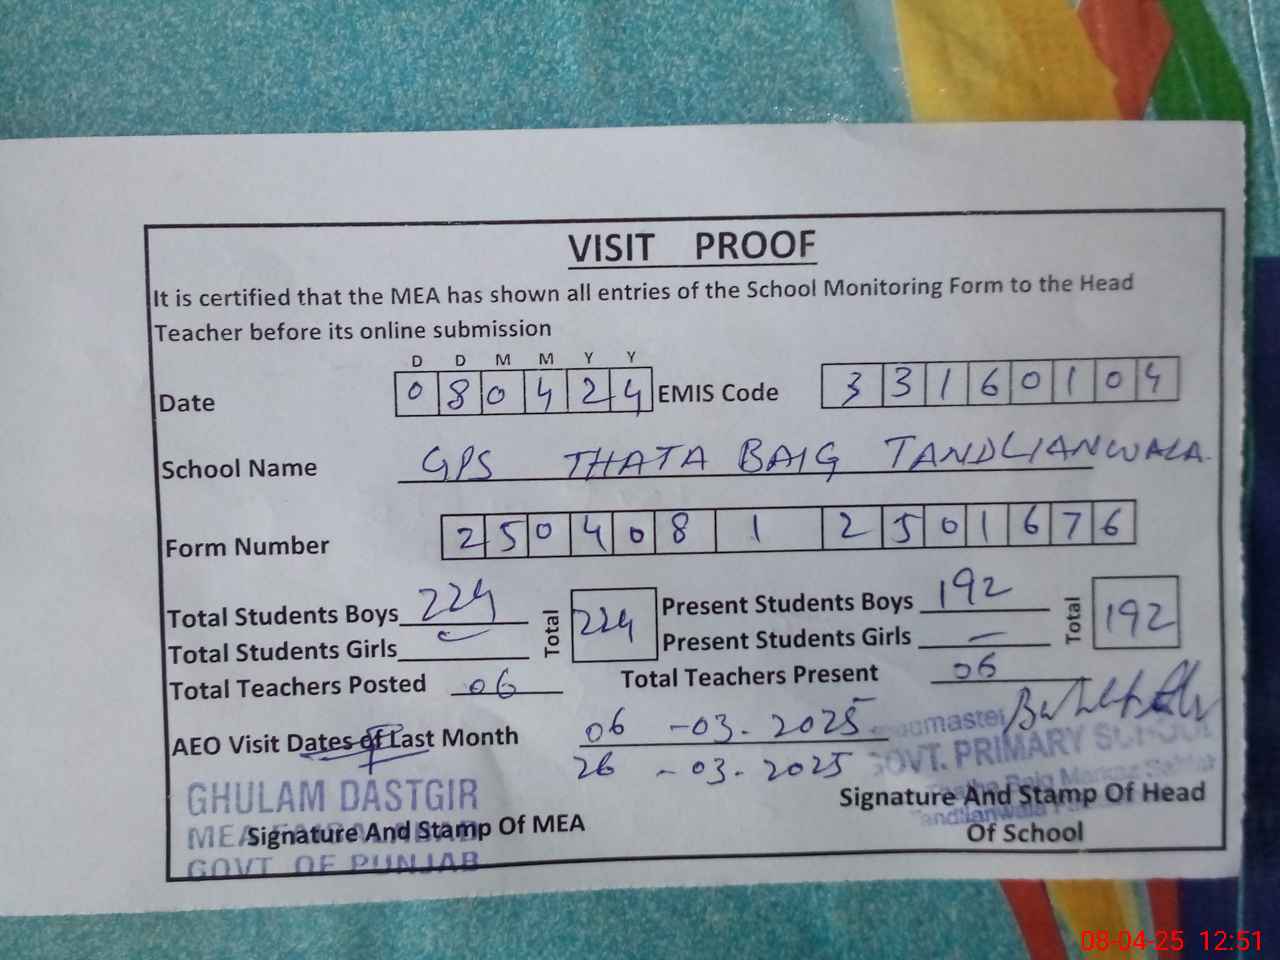 VISIT PROOF
It is certified that the MEA has shown all entries of the School Monitoring Form to the Head
Teacher before its online submission
D D M M Y Y
Date 0 8 0 4 2 4 EMIS Code 3 3 1 6 0 1 0 4
School Name GPS THATA BAIG TANDLIANWALA
Form Number 2 5 0 4 0 8 1 2 5 0 1 6 7 6
Total Students Boys 224 Total 224 Present Students Boys 192 Total 192
Total Students Girls — Present Students Girls —
Total Teachers Posted 06 Total Teachers Present 06
AEO Visit Dates of Last Month 06 -03. 2025
26 -03. 2025
Headmaster
GOVT. PRIMARY SCHOOL
Tandlianwala
GHULAM DASTGIR
MEA FAISALABAD
GOVT OF PUNJAB
Signature And Stamp Of MEA
Signature And Stamp Of Head
Of School
08-04-25 12:51